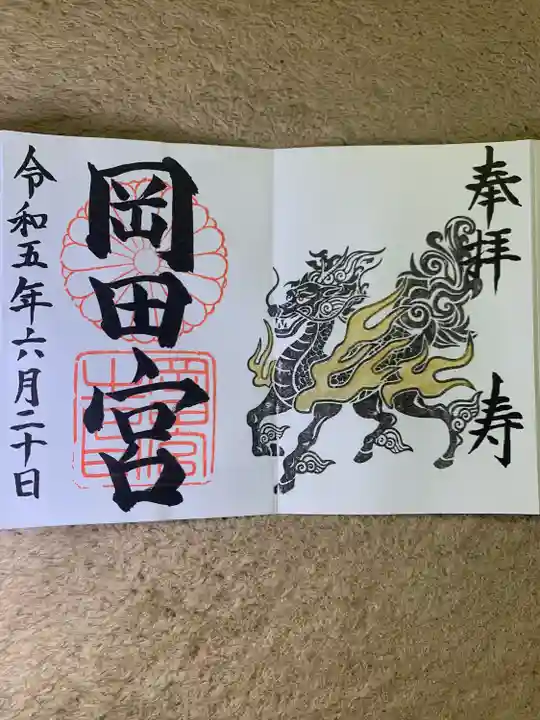 奉拝 寿
岡田宮
令和五年六月二十日